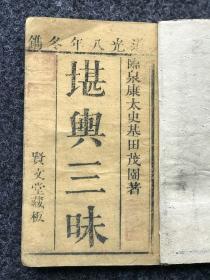 道光八年冬鐫
臨泉康太史基田茂園著
堪輿三昧
賢文堂藏板